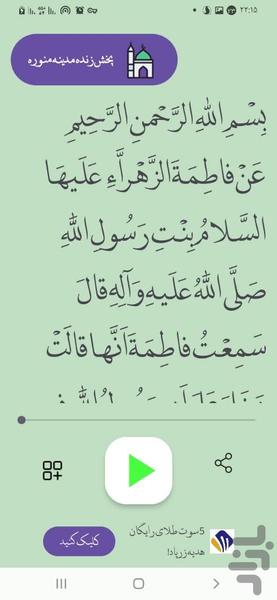 ۲۲:۱۵
پخش زنده مدینه منوره
بِسْمِ اللهِ الرَّحْمنِ الرَّحیمِ
عَنْ فاطِمَةَ الزَّهْراَّءِ عَلَیْهَا
السَّلامُ بِنْتِ رَسُولِ اللهِ
صَلَّى اللهُ عَلَیْهِ وَ آلِهِ قالَ
سَمِعْتُ فاطِمَةَ اَنَّها قالَتْ
5 سوت طلای رایگان
هدیه زرپاد!
کلیک کنید
بازار